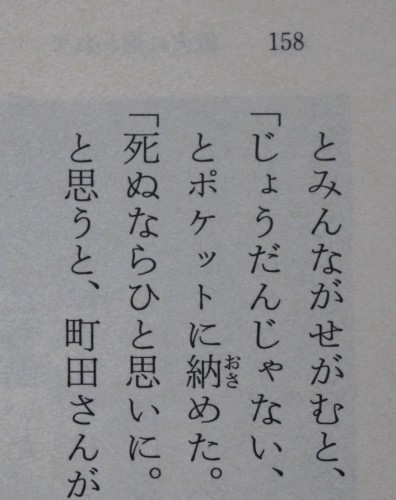 158
とみんながせがむと、
「じょうだんじゃない、
とポケットに納めた。
おさ
「死ぬならひと思いに。
と思うと、町田さんが